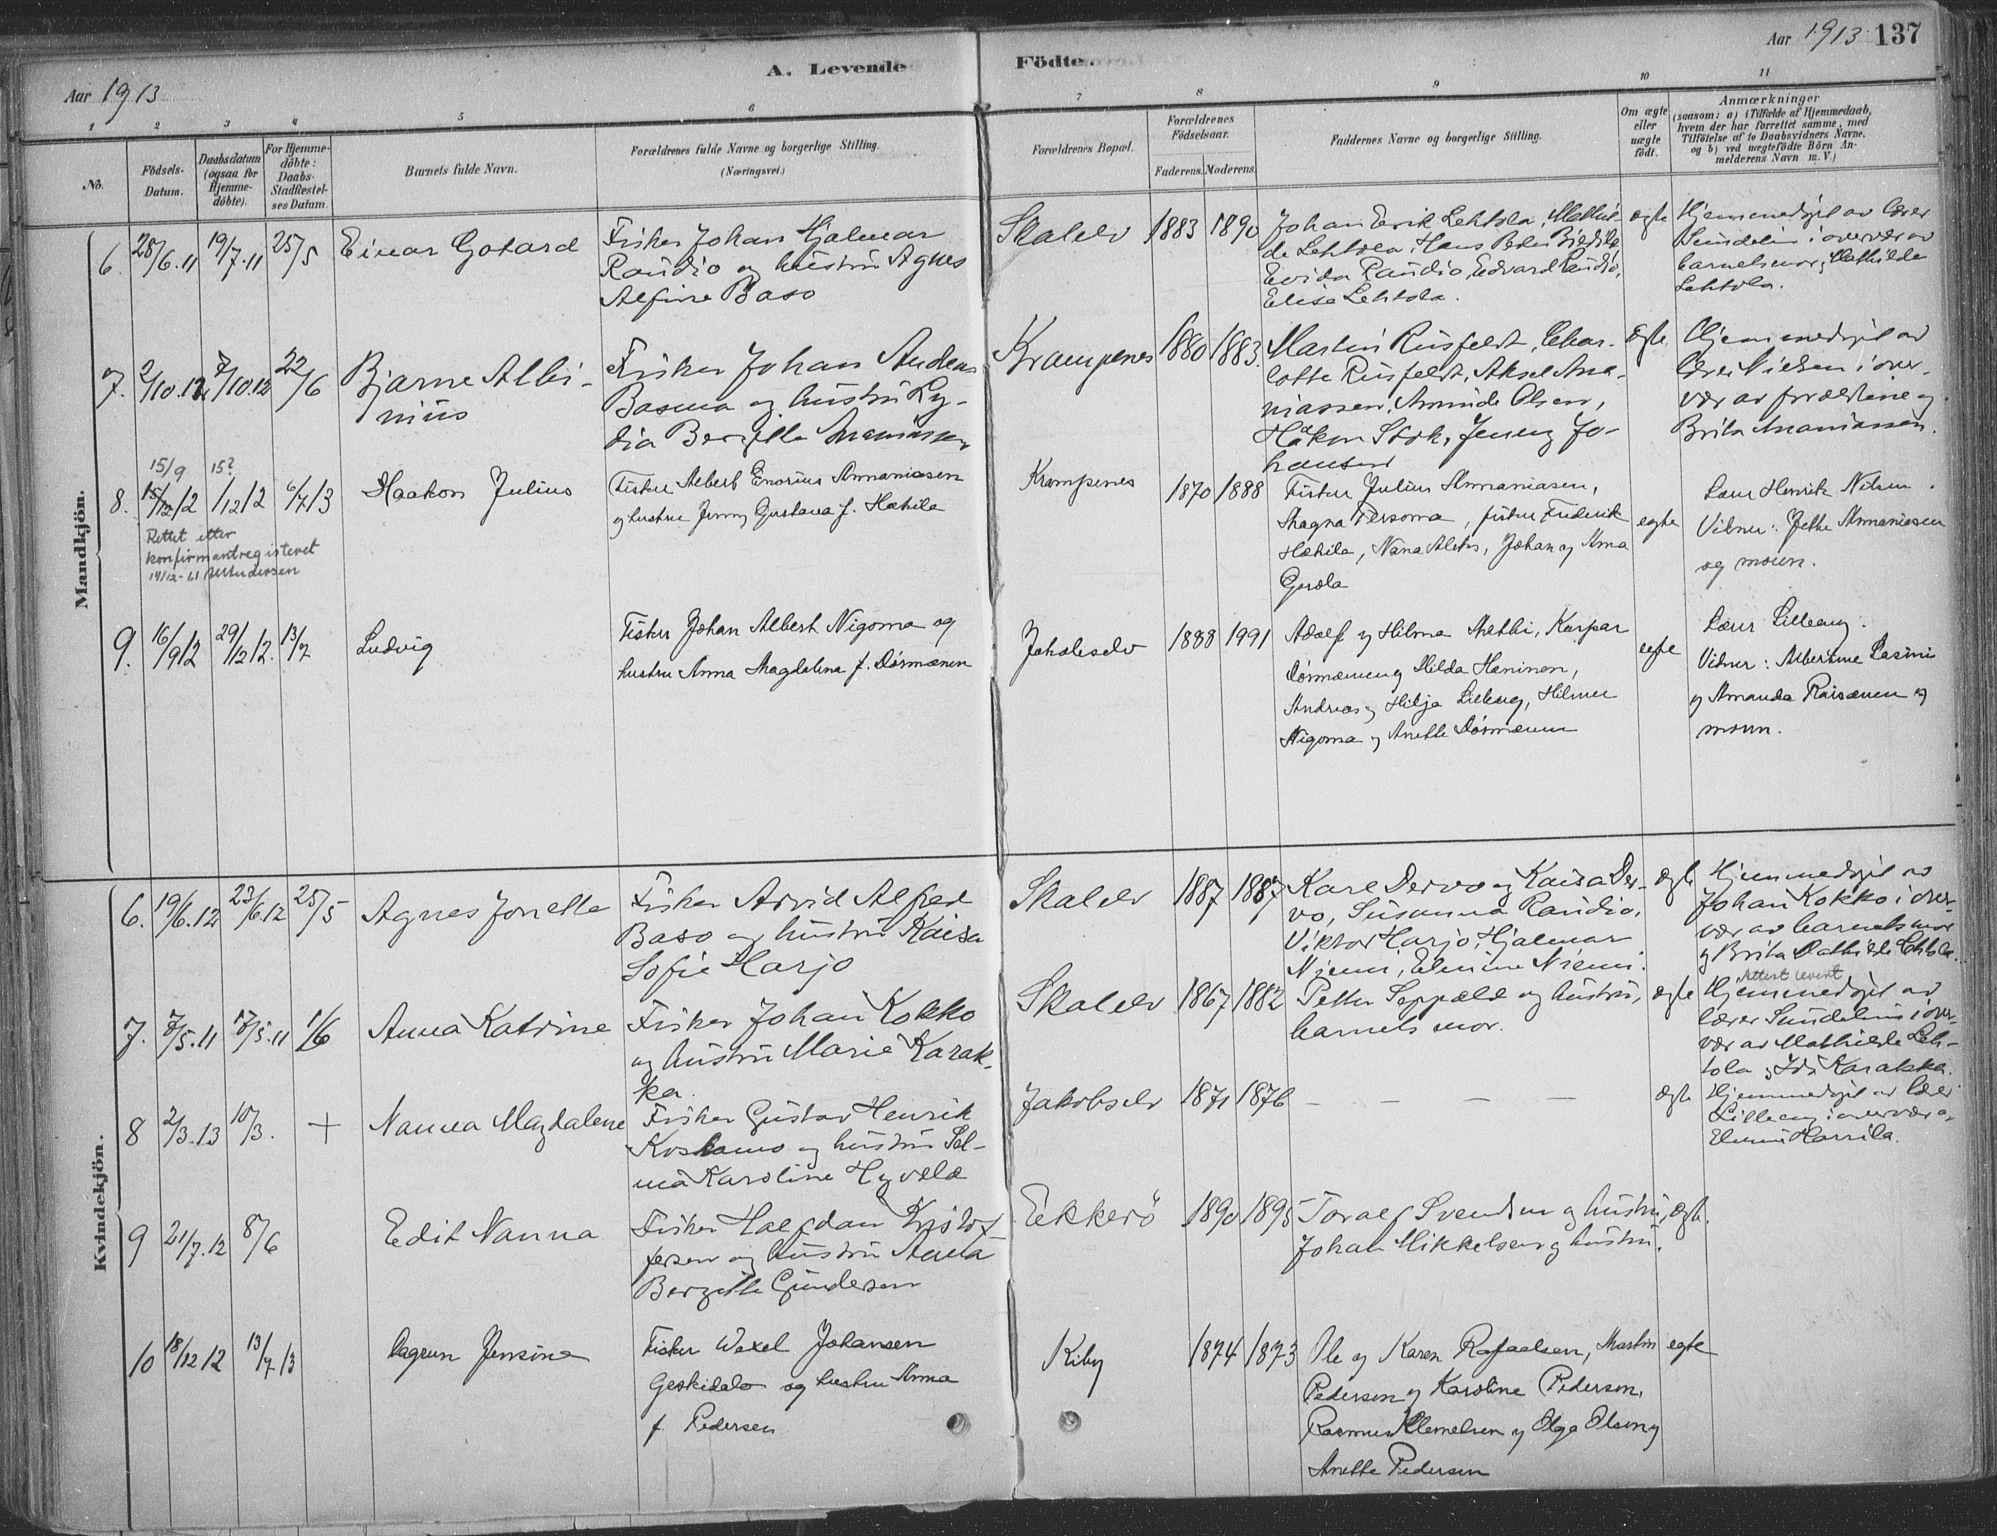 Aar 1913
A. Levende
Födte.
Aar 1913. 137
1 2 3 4 5 6 7 8 9 10 11
No.
Födsels-
Datum.
Daabsdatum
(ogsaa for
Hjemme-
döbte).
For Hjemme-
döbte:
Daabs-
Stadfæstel-
ses Datum.
Barnets fulde Navn.
Forældrenes fulde Navne og borgerlige Stilling.
(Næringsvei.)
Forældrenes Bopæl.
Forældrenes
Födselsaar.
Faderens. Moderens.
Faddernes Navne og borgerlige Stilling.
Om ægte
eller
uægte
födt.
Anmærkninger
(saasom: a) i Tilfælde af Hjemmedaab,
hvem der har forrettet samme, med
Tilföielse af to Daabsvidners Navne.
og b) ved uægtefödte Börn An-
melderens Navn m. V.)
Mandkjön.
6. 28/6.11 19/7.11 25/5 Einar Gotard
Fisker Johan Hjalmar
Raudio og hustru Agnes
Alfine Baso
Skalelv 1883 1890
Johan Erik Lehtola, Mathil-
de Lehtola, Hans Peter
Evida Raudio, Edvard Raudio,
Elise Lehtola.
ægte
Hjemmedøpt av lærer
Sundelin i overvær av
barnets mor og Mathilde
Lehtola.
7. 2/10.12 7/10.12 22/6 Bjarne Albi-
nius
Fisker Johan Anders
Basma og hustru Ly-
dia Bergitte Ananiassen
Krampenes 1880 1883.
Martin Rusfeldt, Char-
lotte Rusfeldt, Aksel Ana-
niassen, Olsen,
Håkon Stok, Jenny Jo-
hansen
ægte
Hjemmedøpt av
lærer Nielsen i over-
vær av forældrene og
Brita Ananiassen.
15/9 15?
8. 15/12 12 1/12 12 6/7 13 Haakon Julius
Rettet etter
konfirmantregisteret
14/12-61
Fisker Albert Enorius Annaniasen
og hustru Jenny Gustava f. Hætila
Krampenes 1870 1888
Fisker Julius Annaniasen,
Magna Persoma, fisker Frederik
Hætila, Nana Aleks, Johan og Anna
Gurdla
egte
Lærer Henrik Nilsen.
Vidner: Jette Annaniasen
og moren.
9. 16/9 12 29/12 12. 13/7 Ludvig
Fisker Johan Albert Nigoma og
hustru Anna Magdalena f. Dørmænen
Jakobselv 1888 1991
Adolf og Hilma Mathi, Kaspar
Dørmænen og Hilda Heninen,
Andreas og Hilja Lilleng, Hilmer
Nigoma og Anette Dørmænen
egte
Lærer Lilleng.
Vidner: Albertine Lasini
og Amanda Raisænen og
moren.
Kvindekjön.
6. 19/6.12 23/6.12 25/5 Agnes Jonette
Fisker Arvid Alfred
Baso og hustru Kaisa
Sofie Harjo
Skalelv 1887 1887
Karl Dervo og Kaisa Der-
vo, Susanna Raudio,
Viktor Harjo, Hjalmar
Niemi, Elmine Niemi.
ægte
Hjemmedøpt av
Johan Kokko i over-
vær av barnets mor
og Brita Mathilde Lehtola.
7. 7/5.11 8/5.11 1/6 Anna Katrine
Fisker Johan Kokko
og hustru Marie Karak-
ka.
Skalelv 1867 1882
Petter Seppælæ og hustru,
barnets mor.
ægte
Attest levert
Hjemmedøpt av
lærer Sundelin i over-
vær av Mathilde Leh-
tola og Ida Karakka.
8 2/3.13 10/3. + Nanna Magdalene
Fisker Gustav Henrik
Koskamo og hustru Sel-
ma Karoline Hyvelæ
Jakobselv 1871 1876 – – – –
ægte
Hjemmedøpt av lærer
Lilleng i overvær av
Elmine Harrila.
9 21/7.12 8/6 Edit Nanna
Fisker Halfdan Kristof-
fersen og hustru Anna
Bergitte Gundersen
Ekkerö 1890 1895
Toralf Svendsen og hustru,
Johan Mikkelsen og hustru.
ægte.
10 18/12 12 13/7 13 Dagrun Jensine
Fisker Wexel Johansen
Geskidalo og hustru Anna
f. Pedersen
Kiby 1874 1873
Ole og Karen Rafaelsen, Martin
Pedersen og Karoline Pedersen,
Rasmus Klemetsen og Olga Olsen og
Anette Pedersen
egte